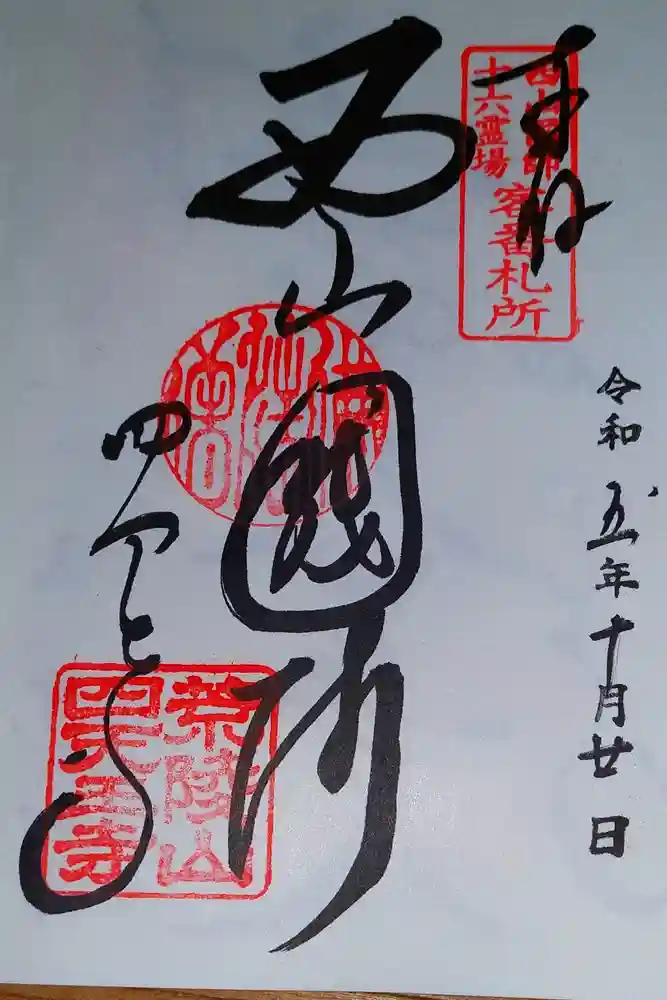 奉拝
西山国師
十六霊場
客番札所
令和五年十月廿日
西山國師
四天王寺
荒陵山
四天王寺